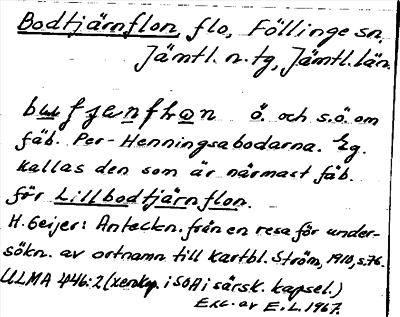 Bodtjärnflon, flo, Föllinge sn.
Jämtl. n. tg, Jämtl. län.
ö. och s.ö om
fäb. Per-Henningsabodarna. Eg.
kallas den som är närmast fäb.
för Lillbodtjärnflon.
H. Geijer: Anteckn. från en resa för under-
sökn. av ortnamn till kartbl. Ström, 1910, s. 76.
ULMA 446:2 (xerokop. i SOA i särsk. kapsel.)
Exc. av E.L. 1967.